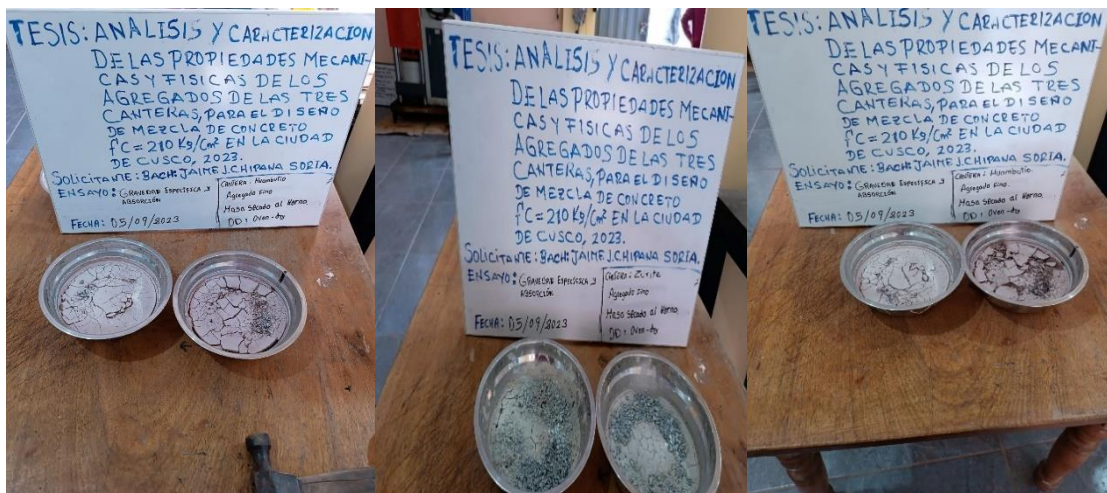 TESIS: ANÁLISIS Y CARACTERIZACION
DE LAS PROPIEDADES MECANI-
CAS Y FISICAS DE LOS
AGREGADOS DE LAS TRES
CANTERAS, PARA EL DISEÑO
DE MEZCLA DE CONCRETO
f'c = 210 Kg/Cm² EN LA CIUDAD
DE CUSCO, 2023.
Solicitante: BACH: JAIME J. CHIPANA SORIA.
ENSAYO: GRAVEDAD ESPECÍFICA y
ABSORCIÓN
FECHA: 05/09/2023
Cantera: Huambutio
Agregado Fino
Masa Secado al Horno
OD: Oven-dry
TESIS: ANÁLISIS Y CARACTERIZACION
DE LAS PROPIEDADES MECANI-
CAS Y FISICAS DE LOS
AGREGADOS DE LAS TRES
CANTERAS, PARA EL DISEÑO
DE MEZCLA DE CONCRETO
f'c = 210 Kg/Cm² EN LA CIUDAD
DE CUSCO, 2023.
Solicitante: BACH: JAIME J. CHIPANA SORIA.
ENSAYO: GRAVEDAD ESPECÍFICA y
ABSORCIÓN
FECHA: 05/09/2023
Cantera: Zurite
Agregado Fino
Masa Secado al Horno
OD: Oven-dry
TESIS: ANÁLISIS Y CARACTERIZACION
DE LAS PROPIEDADES MECANI-
CAS Y FISICAS DE LOS
AGREGADOS DE LAS TRES
CANTERAS, PARA EL DISEÑO
DE MEZCLA DE CONCRETO
f'c = 210 Kg/Cm² EN LA CIUDAD
DE CUSCO, 2023.
Solicitante: BACH: JAIME J. CHIPANA SORIA.
ENSAYO: GRAVEDAD ESPECÍFICA y
ABSORCIÓN
FECHA: 05/09/2023
Cantera: Huambutio
Agregado Fino
Masa Secado al Horno
OD: Oven-dry